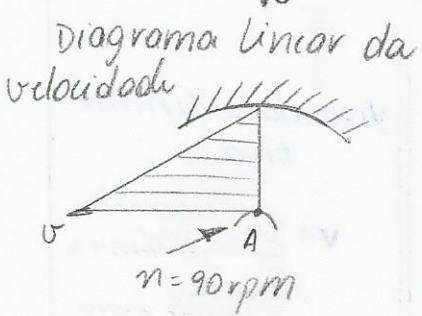 Diagrama linear da
velocidade
v
A
n=90rpm